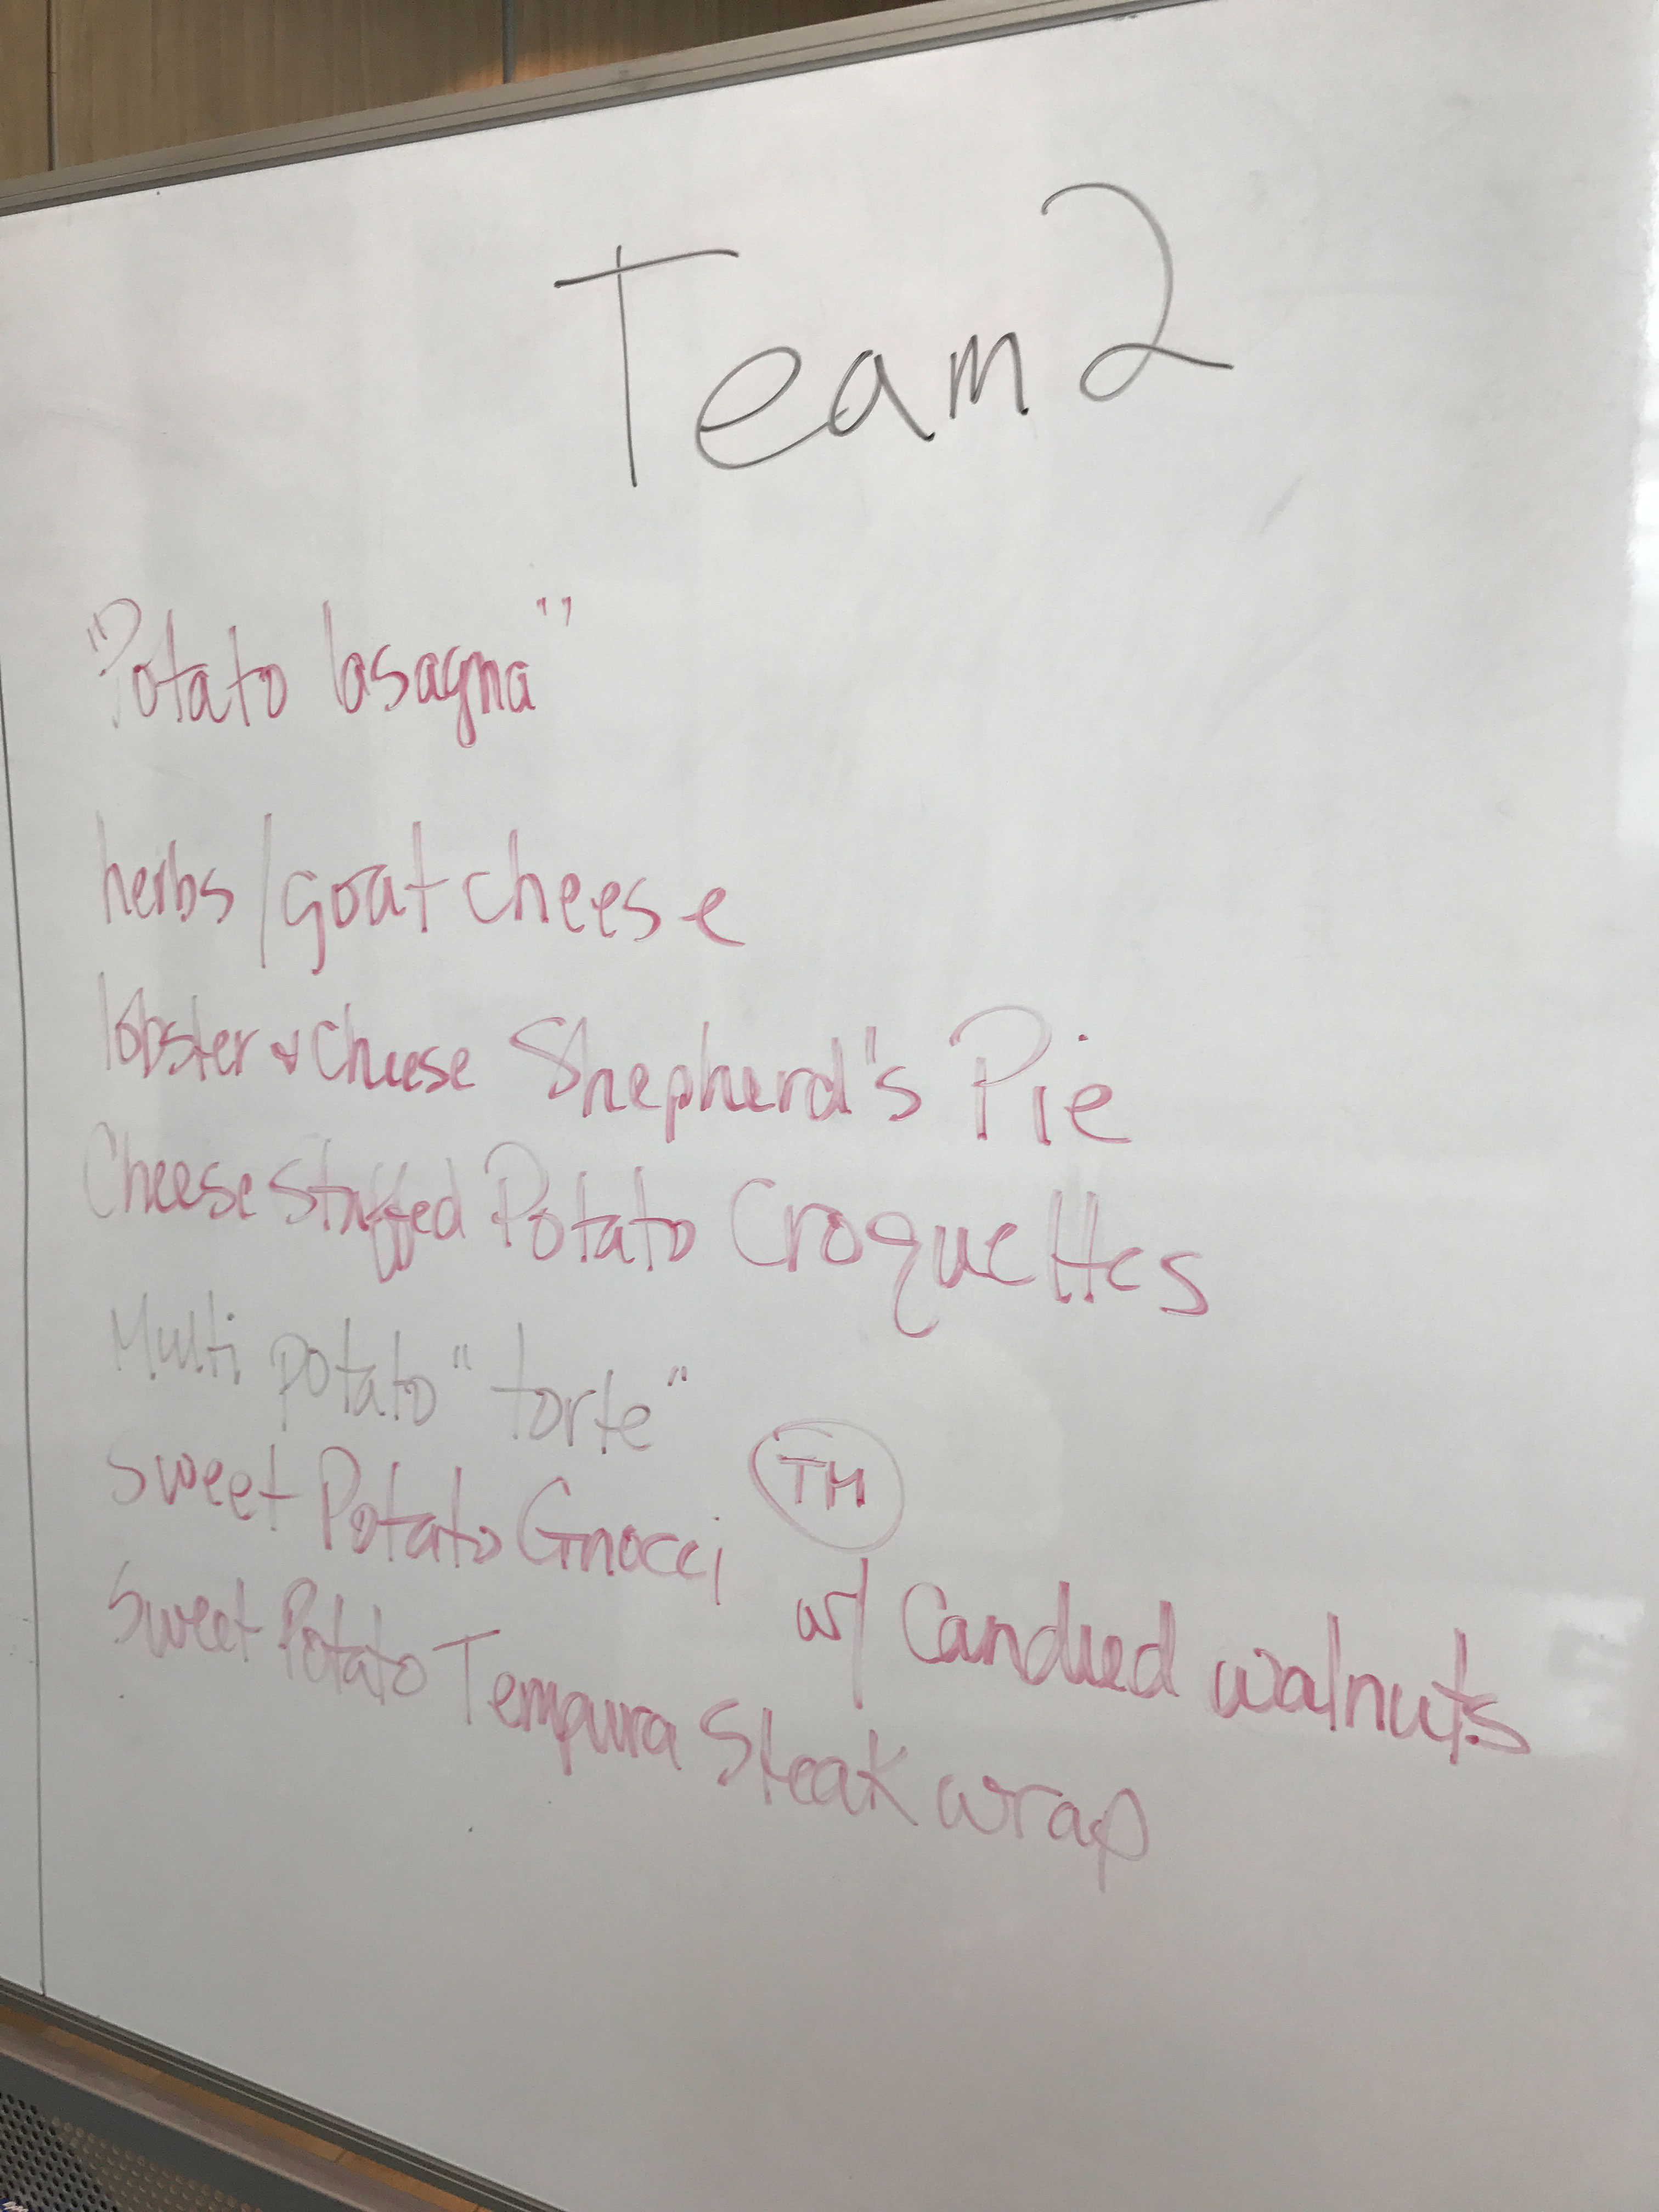 Team 2
"Potato lasagna"
herbs/goat cheese
lobster & cheese Shepherd's Pie
Cheese Stuffed Potato Croquettes
Multi potato "torte"
Sweet Potato Gnocci TM w/ Candied walnuts
Sweet Potato Tempura Steak wrap